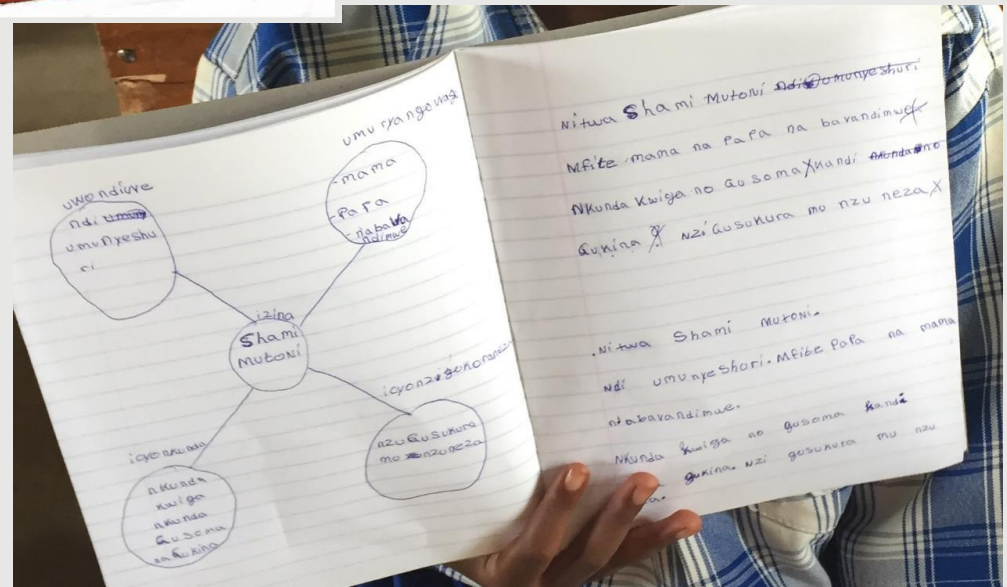 uwondiuve
ndi umun
umunyeshu
ri
umuryangowagi
-mama
-papa
-nabaBa
ndimwe
izina
Shami
Mutoni
icyonkunda
nkunda
kwiga
nkunda
Gusoma
na Gukina
icyonzigukoraneza
nzu Gusukura
mo nzuneza
Nitwa Shami Mutoni ndi umunyeshuri
Mfite mama na papa na bavandimwe
Nkunda kwiga no Gusoma kandi nkunda no
Gukina nzi Gusukura mu nzu neza
.Nitwa Shami Mutoni.
Ndi umunyeshuri. Mfite Papa na mama
ntabavandimwe.
Nkunda kwiga no gusoma kandi
gukina. Nzi gusukura mu nzu
a.